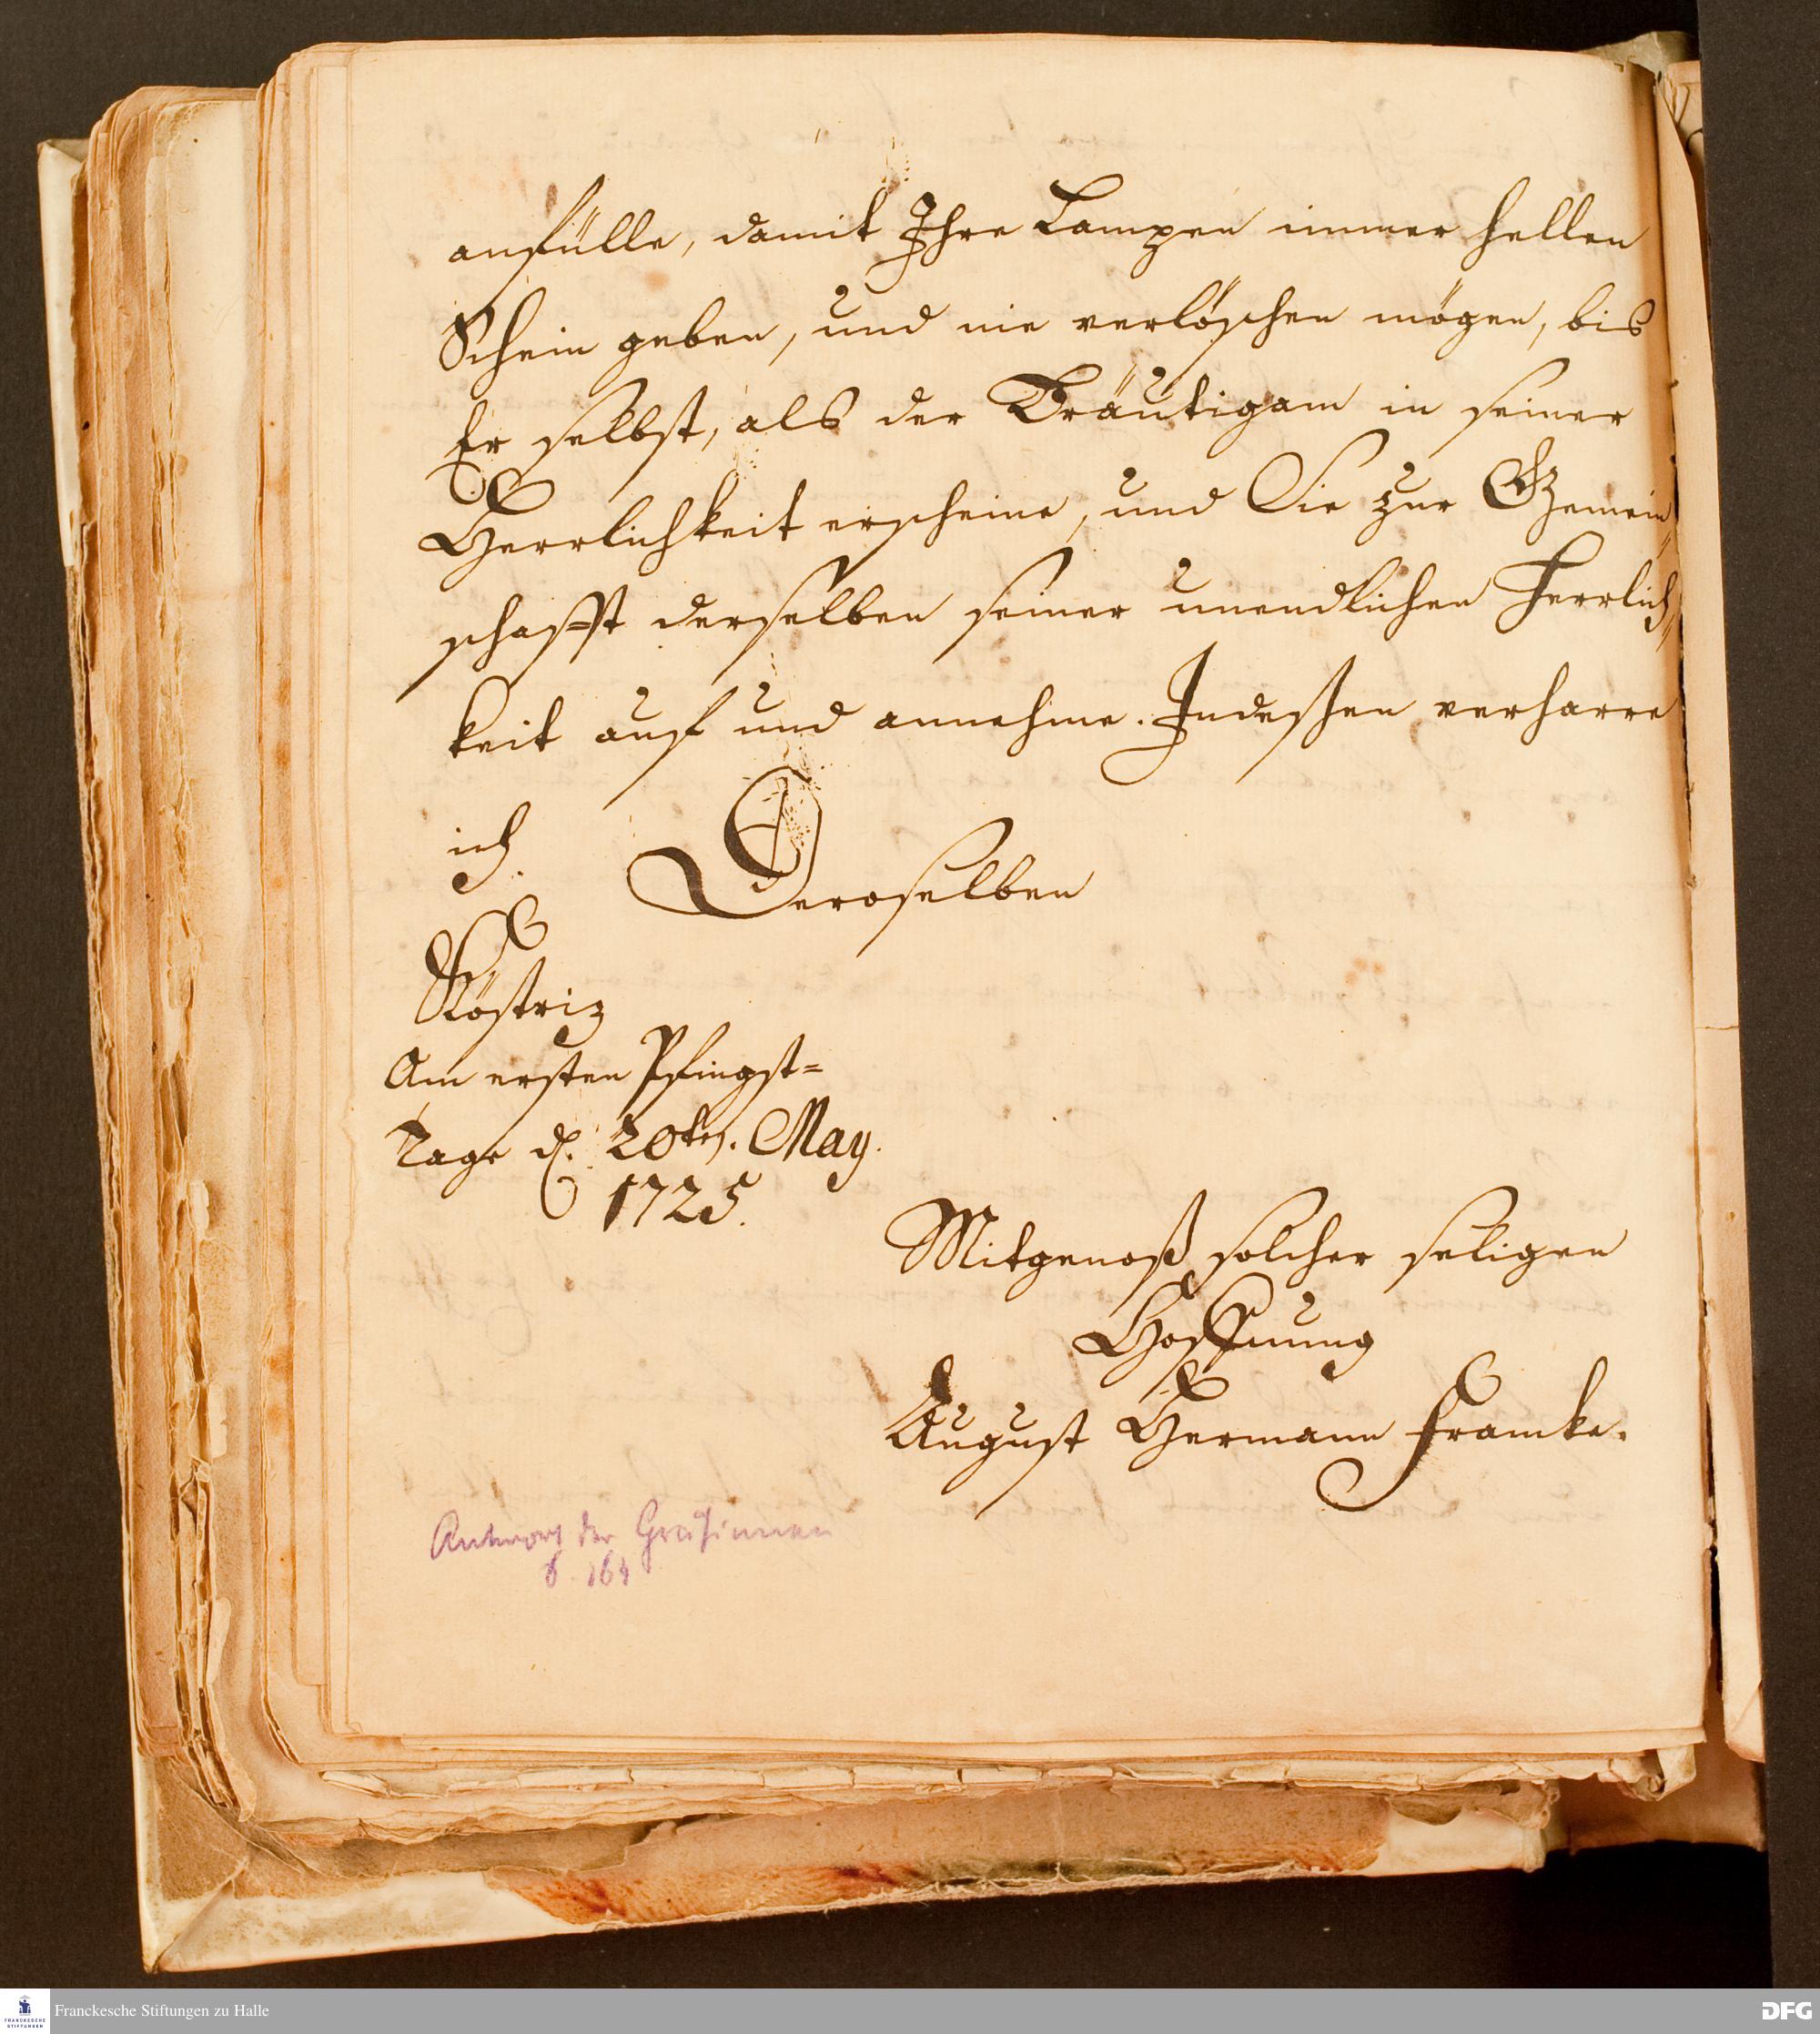 anfülle, damit Ihre Lampen immer hellen
Schein geben, und nie verlöschen mögen, bis
Er selbst, als der Bräutigam in seiner
Herrlichkeit erscheine, und Sie zur Gemein„
schafft derselben seiner unendlichen Herrlich„
keit auf und annehme. Indeßen verharre
ich.
Deroselben
Köstriz
Am ersten Pfingst=
Tage d. 20ten. May.
1725.
Mitgenoß solcher seligen
Hoffnung
August Hermann Francke.
Antwort der Gräfinnen
164
Franckesche Stiftungen zu Halle
FRANCKESCHE
STIFTUNGEN
DFG